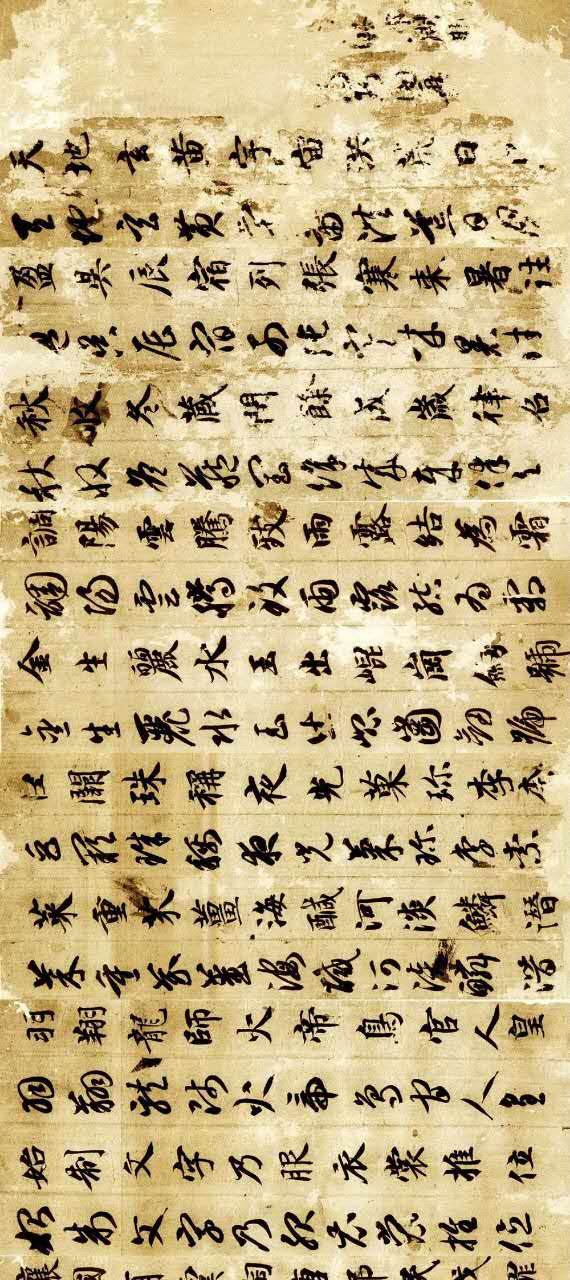 天地玄黃宇宙洪荒日
天地玄黃宇宙洪荒日月
盈昃辰宿列張寒來暑往
盈昃辰宿列張寒來暑往
秋收冬藏閏餘成歲律呂
秋收冬藏閏餘成歲律呂
調陽雲騰致雨露結為霜
調陽雲騰致雨露結為霜
金生麗水玉出崐崗劒號
金生麗水玉出崐崗劒號
巨闕珠稱夜光菓珍李柰
巨闕珠稱夜光菓珍李柰
菜重芥薑海鹹河淡鱗潛
菜重芥薑海鹹河淡鱗潛
羽翔龍師火帝鳥官人皇
羽翔龍師火帝鳥官人皇
始制文字乃服衣裳推位
始制文字乃服衣裳推位